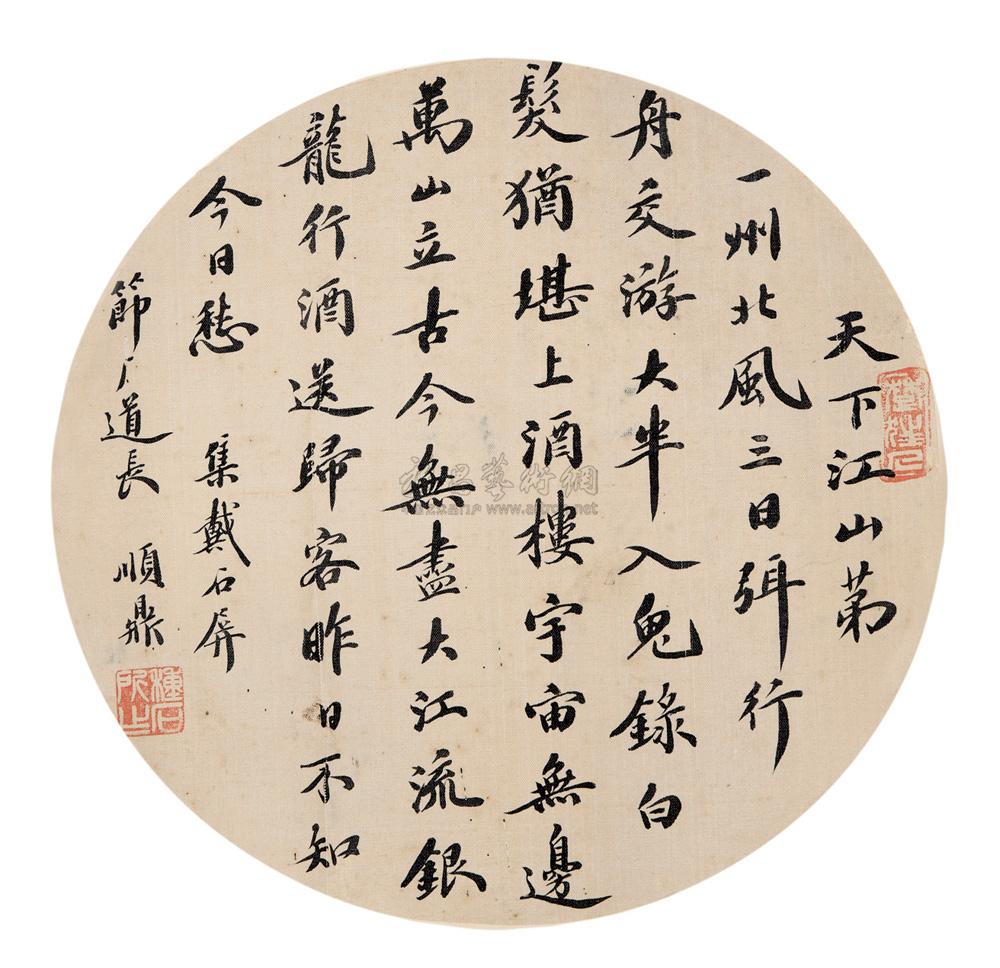 天下江山第
一州北風三日弭行
舟交游大半入鬼錄白
髮猶堪上酒樓宇宙無邊
萬山立古今無盡大江流銀
龍行酒送歸客昨日不知
今日愁 集戴石屏
節厂道長 順鼎
雅昌藝術網
www.artron.net